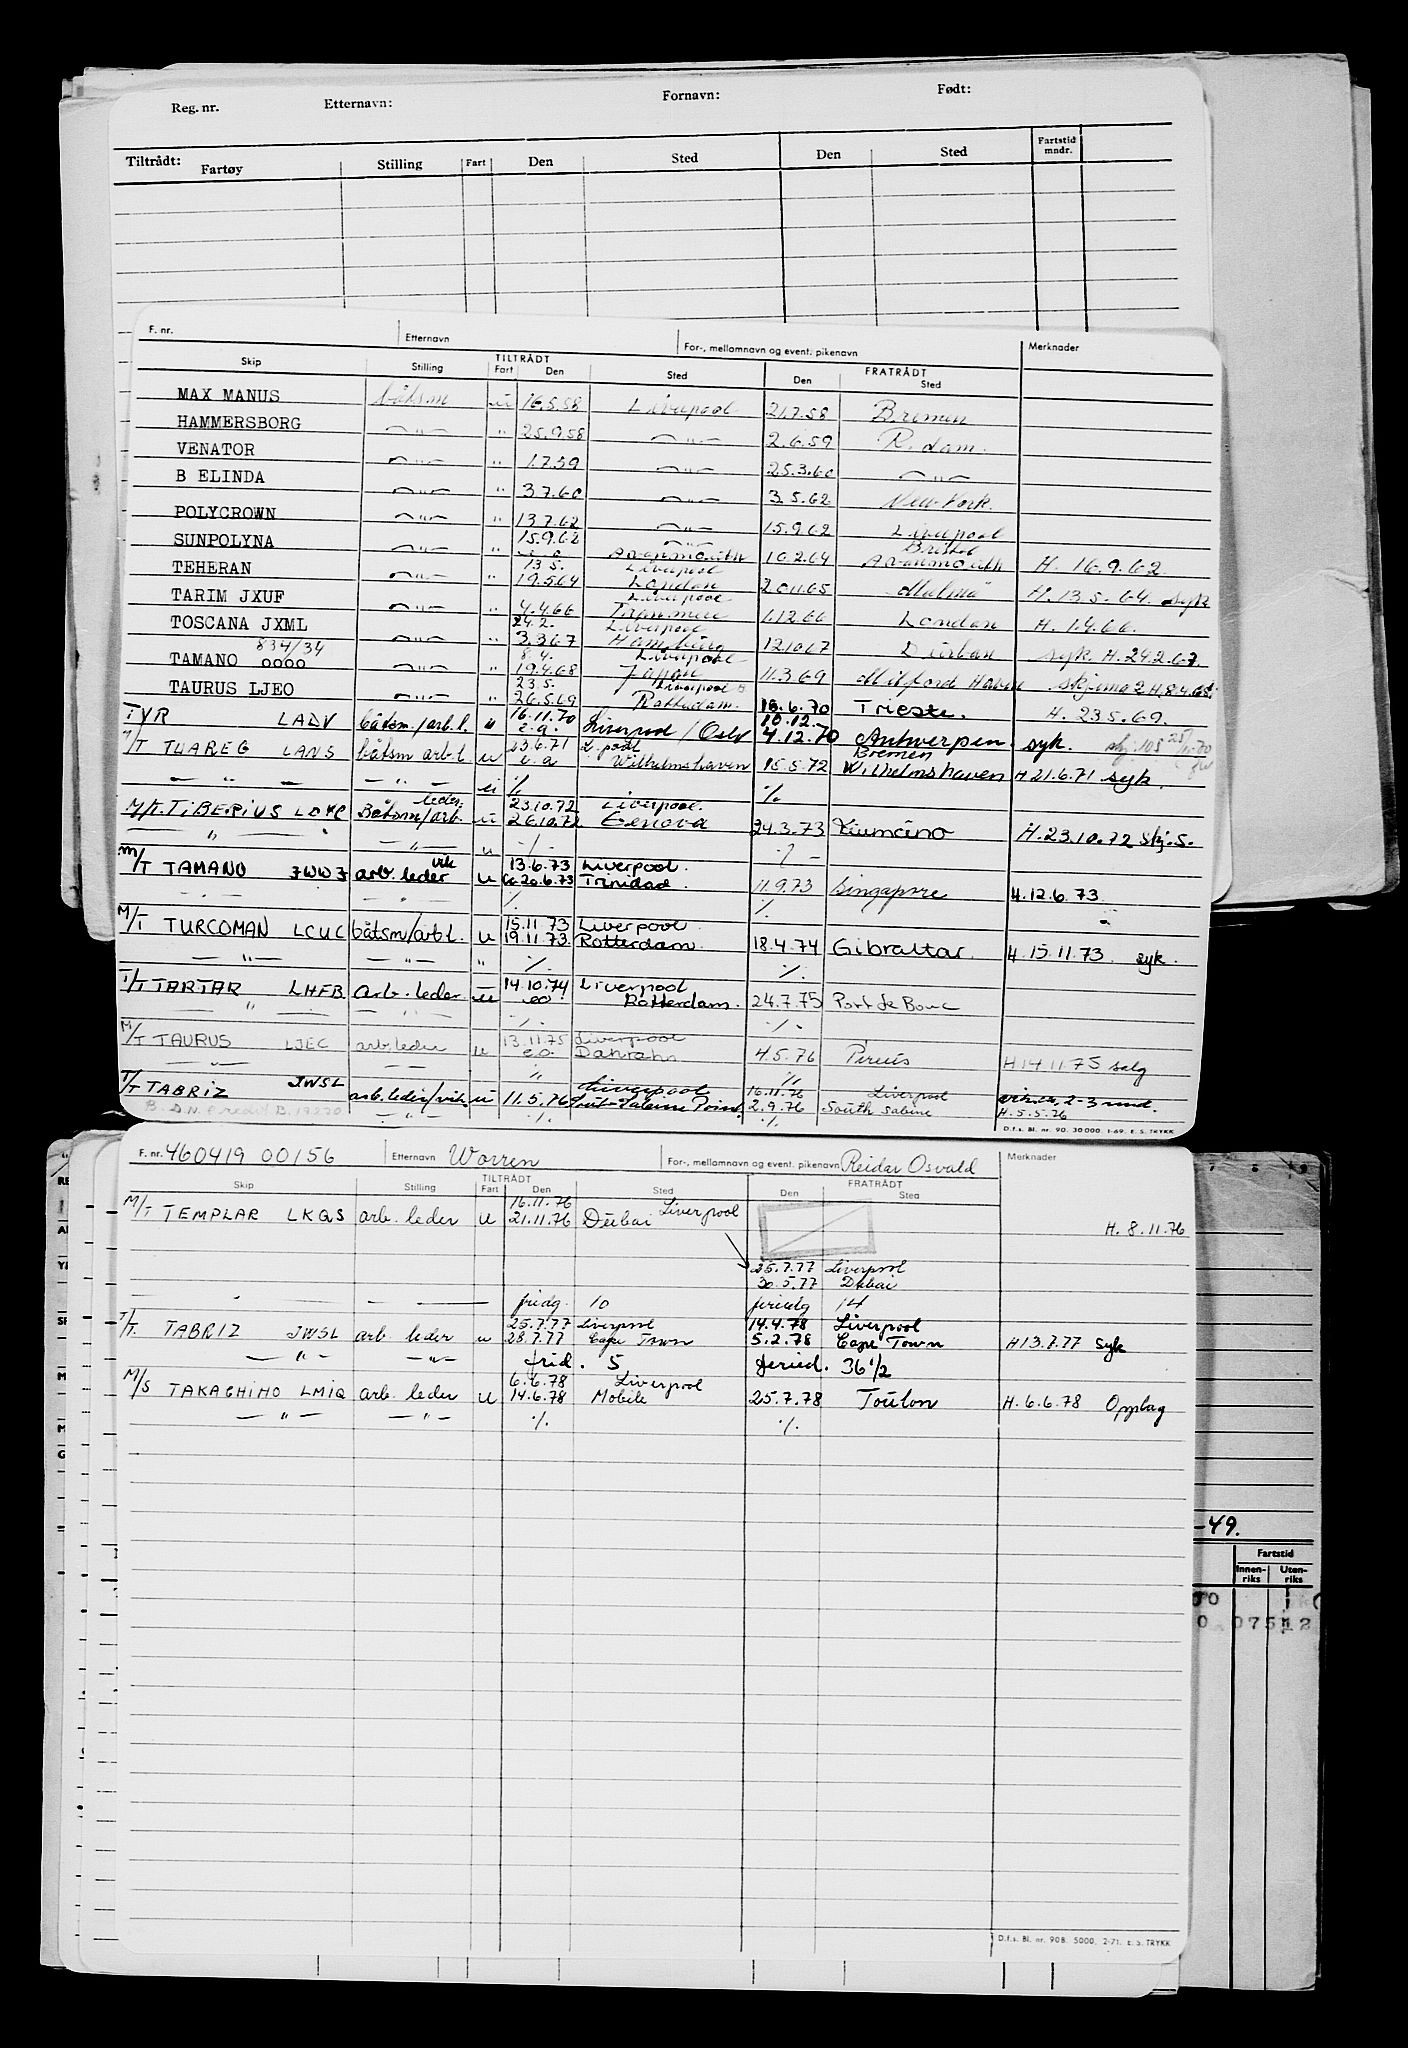 Reg. nr. Etternavn: Fornavn: Født:
Tiltrådt: Fartøy Stilling Fart Den Sted Den Sted Fartstid mndr.
F. nr. Etternavn For-, mellomnavn og event. pikenavn Merknader
TILTRÅDT FRATRÅDT
Skip Stilling Fart Den Sted Den Sted
MAX MANUS båtsm u 16.5.58 Liverpool 21.7.58 Bremen
HAMMERSBORG —"— " 25.9.58 —"— 2.6.59 R.dam.
VENATOR —"— " 1.7.59 —"— 25.3.60 —"—
B ELINDA —"— " 3.7.60 —"— 3.5.62 New York.
POLYCROWN —"— " 13.7.62 —"— 15.9.62 Liverpool
15.9.62 —"— Bristol
SUNPOLYNA —"— " Avonmouth 16.2.64 Avonmouth H. 16.9.62
13.5. Liverpool
TEHERAN —"— " 19.5.64 London 20.11.65 Malmö H. 13.5.64. syk
Liverpool
TARIM JXUF —"— " 4.4.66 Tranmere 1.12.66 London H. 1.4.66.
24.2. Liverpool
TOSCANA JXML —"— " 3.3.67 Hamburg 12.10.67 Durban syk. H. 24.2.67.
834/34
8.4. Liverpool
TAMANO OOOO —"— " 19.4.68 Japan 11.3.69 Milford Haven skjema 2 H.8.4.68
23.5. Liverpool
TAURUS LJEO —"— " 26.5.69 Rotterdam. 18.6.70 Trieste. H. 23.5.69.
16.11.70 10.12.
TYR LADV båtsm./arb.l. u e.a. Liverpool / Oslo 4.12.70 Antwerpen. syk.
23.6.71 L.pool Bremen
M/T TUAREG LANS båtsm arb.l u e.a Wilhelmshaven 15.5.72 Wilhelmshaven H 21.6.71 syk.
— " — — " — u % %
leder. 23.10.72 Liverpool.
M/T. TIBERIUS LDKC Båtsm/arb. u 26.10.72 Genova 24.3.73 Fiumcino H. 23.10.72 Skj.S.
— " — — " — u -/- -/-
vik 13.6.73 Liverpool.
M/T TAMANO JWWJ arb. leder u ca 20.6.73 Trinidad. 11.9.73 Singapore H. 12.6.73
— " — — " — % %
15.11.73 Liverpool.
M/T TURCOMAN LCUC båtsm/arb l. u 19.11.73. Rotterdam. 18.4.74 Gibraltar. H. 15.11.73. syk.
— " — — " — " % %
14.10.74 Liverpool
T/T TARTAR LHFB arb. leder. u eo Rotterdam. 24.7.75 Port de Bouc
— " — — " — -/- -/-
13.11.75 Liverpool
M/T TAURUS LJEC arb.leder u e.o. Dahrahn 4.5.76 Pireus H 14.11.75 salg
— " — % %
Liverpool 16.11.76 Liverpool
T/T TABRIZ JWSL arb.leder/vik u 11.5.76 Sabine Point 2.9.76 South Sabine 2-3 mnd.
H. 5.5.76
B.D.N. -/- -/-
D.f.s. Bl. nr. 90. 30000. 1-69. E. S. TRYKK
F. nr. 460419 00156 Etternavn Worren For-, mellomnavn og event. pikenavn Reidar Osvald Merknader
TILTRÅDT FRATRÅDT
Skip Stilling Fart Den Sted Den Sted
16.11.76 Liverpool
M/T TEMPLAR LKQS arb. leder u 21.11.76 Dubai H. 8.11.76
25.7.77 Liverpool
30.5.77 Dubai
— " — — " — fridg. 10 feriedg 14
25.7.77 Liverpool 14.4.78 Liverpool
T/T. TABRIZ JWSL arb leder u 28.7.77 Cape Town 5.2.78 Cape Town H 13.7.77 syk
— " — — " — frid. 5 feried. 36 1/2
6.6.78 Liverpool
M/S TAKACHIHO LMIQ arb. leder u 14.6.78 Mobile 25.7.78 Toulon H. 6.6.78 Opplag
— " — — " — % %
-49.
Fartstid
Innenriks Utenriks
D.f.s. Bl. nr. 90B. 5000. 2-71. E. S. TRYKK